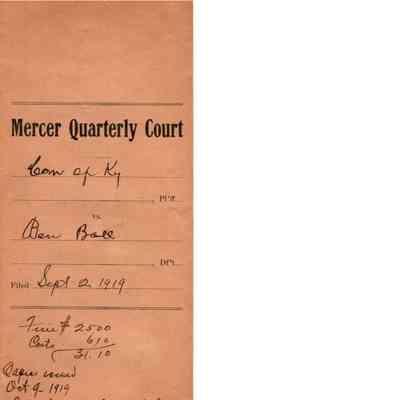 Mercer Quarterly Court
Com of Ky
Pl'ff.
vs.
Ben Ball
Df't.
Filed Sept 2 1919
Fine $ 25 00
Costs 6 10
31.10
issued
Oct 9 - 1919